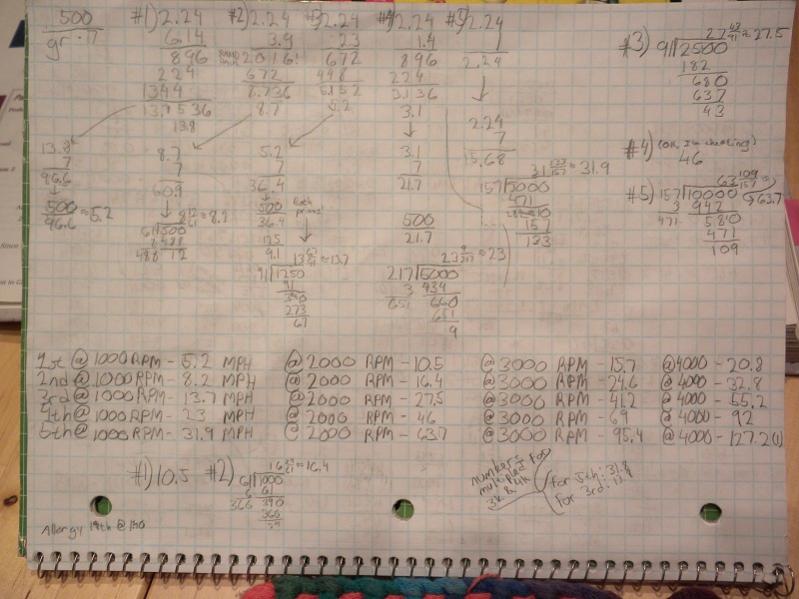 500
gr · 17
#1) 2.24
6.14
896
224
1344
13.7536
13.8
#2) 2.24
3.9
2016
672
8.736
8.7
2.24
23
672
448
5152
5.2
#4) 2.24
1.4
896
224
3.136
3.1
#5) 2.24
1
2.24
2.24
7
15.68
13.8
7
96.6
500
96.6
≈ 5.2
8.7
7
60.9
8 12/61 ≈ 8.2
61)500
488
12
5.2
7
36.4
500
36.4
125
9.1
≈ 13.7
91)1250
91
340
273
67
3.1
7
21.7
500
21.7
≈ 23
217)5000
434
660
651
9
≈ 31.9
157)5000
471
157
#3) 91)2500
≈ 27.5
182
680
637
43
#4) (OK, I'm cheating)
46
#5) 157)10000
63 109/157 ≈ 63.7
942
580
471
109
1st @ 1000 RPM - 5.2 MPH @ 2000 RPM - 10.5 @ 3000 RPM - 15.7 @ 4000 - 20.8
2nd @ 1000 RPM - 8.2 MPH @ 2000 RPM - 16.4 @ 3000 RPM - 24.6 @ 4000 - 32.8
3rd @ 1000 RPM - 13.7 MPH @ 2000 RPM - 27.5 @ 3000 RPM - 41.2 @ 4000 - 55.2
4th @ 1000 RPM - 23 MPH @ 2000 RPM - 46 @ 3000 RPM - 69 @ 4000 - 92
5th @ 1000 RPM - 31.9 MPH @ 2000 RPM - 63.7 @ 3000 RPM - 95.4 @ 4000 - 127.2(!)
#1) 10.5
#2) 61)1000
≈ 16.4
61
390
366
numbers
multiplied for
3k & 4k
for 5th: 31.8
for 3rd:
Allergy 19th @ 130